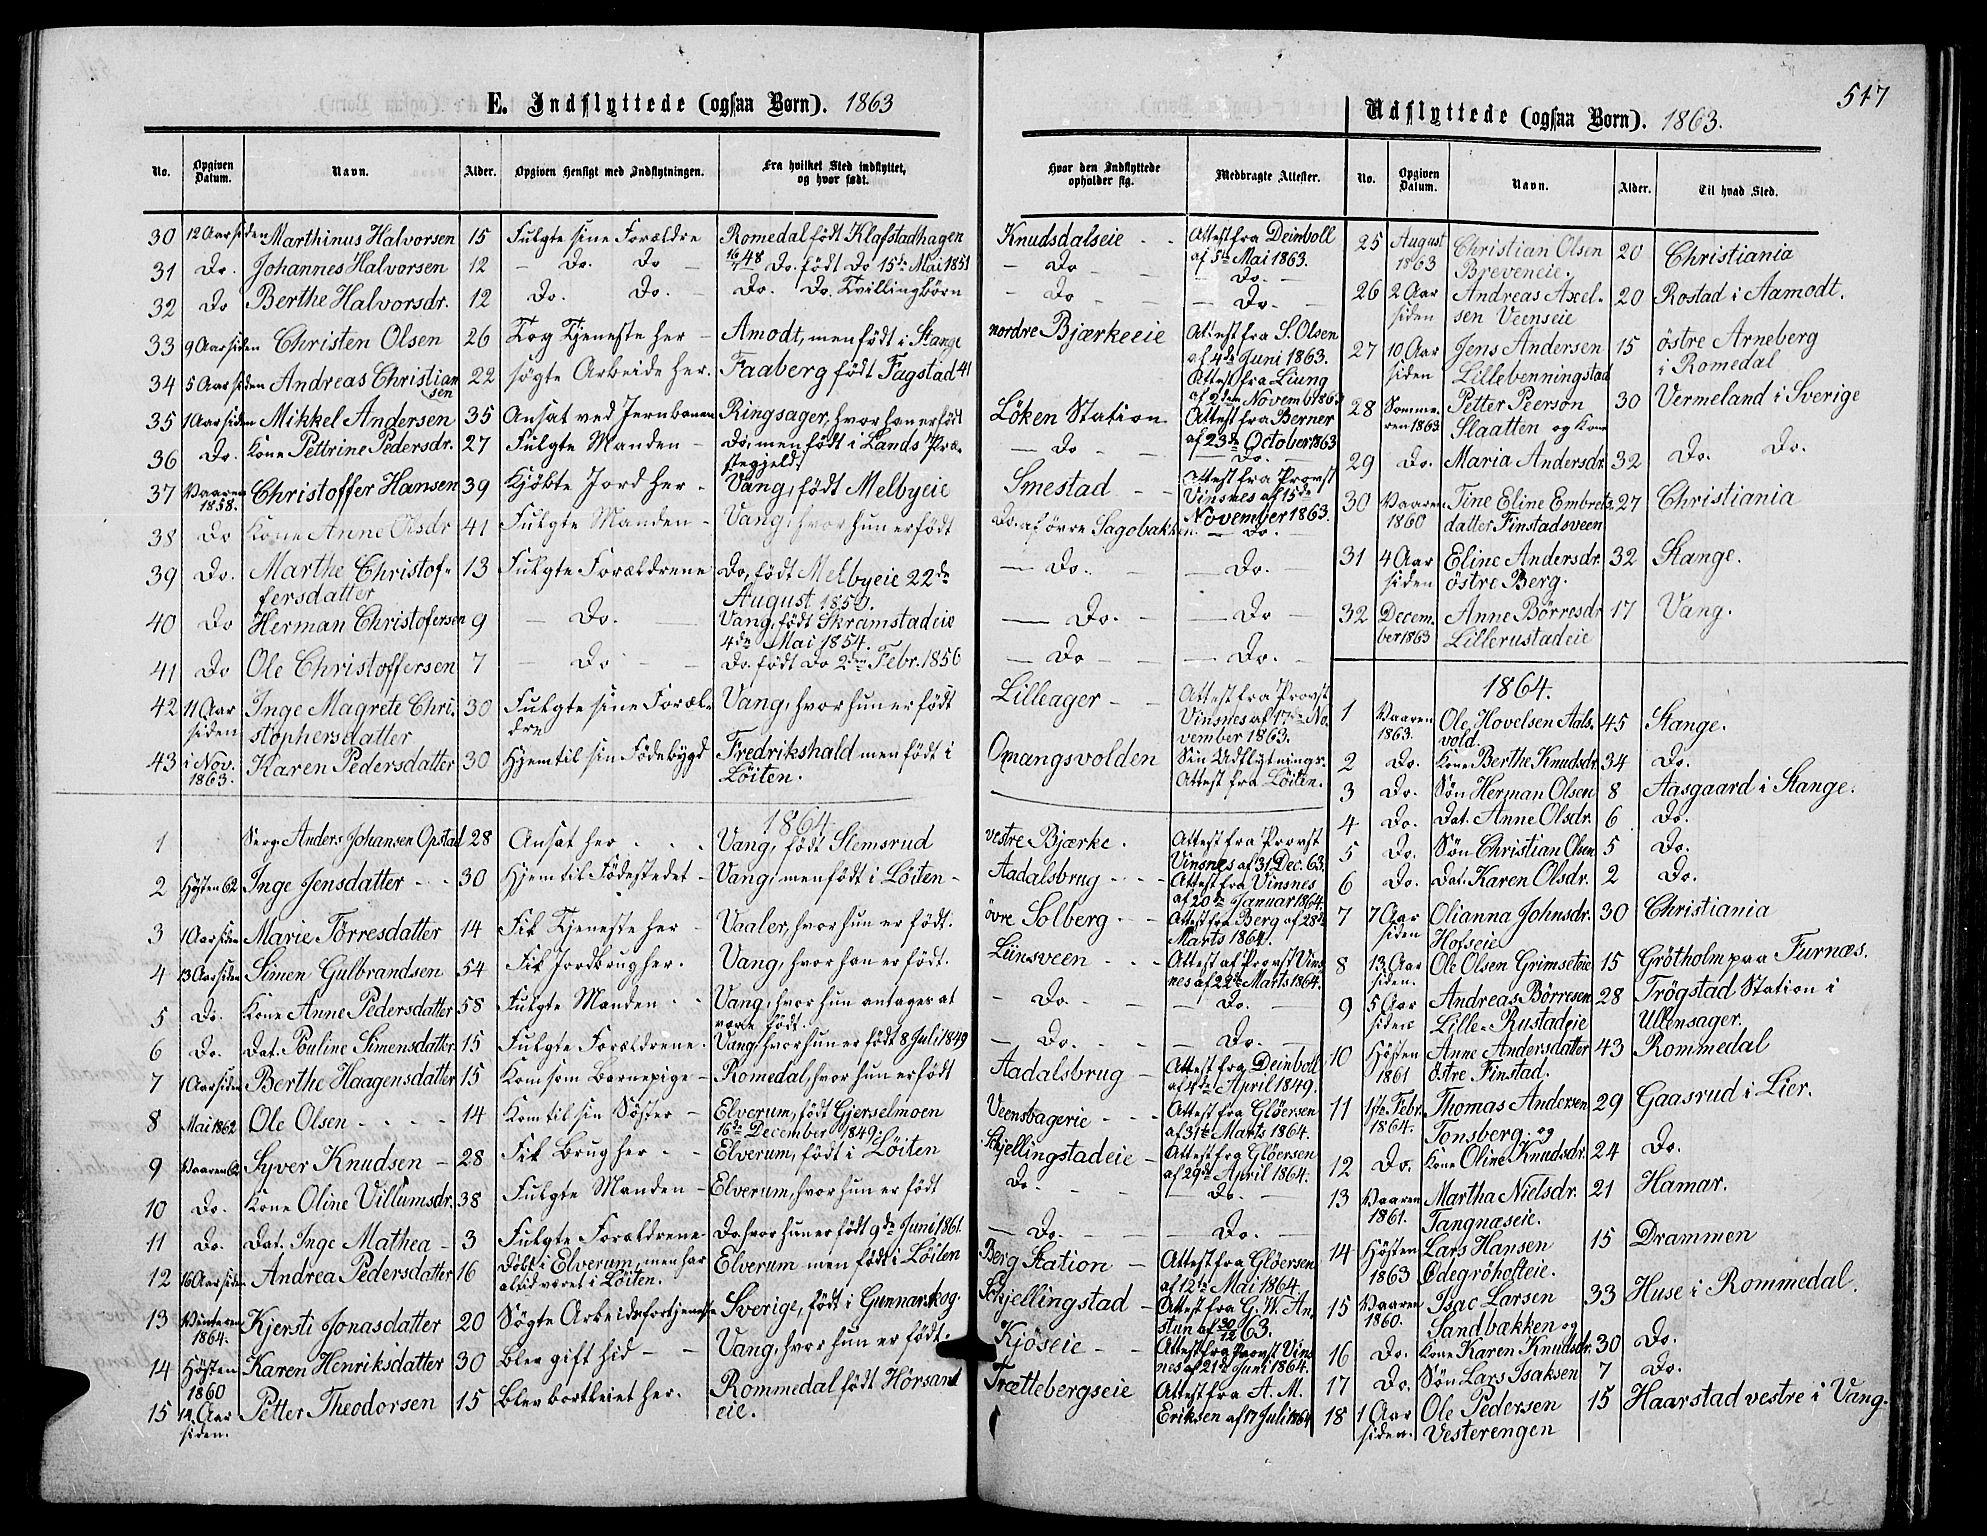 E. Indflyttede (ogsaa Børn). 1863
No. Opgiven Datum. Navn. Alder. Opgiven Hensigt med Indflytningen. Fra hvilket Sted indflyttet, og hvor født. Hvor den Indflyttede opholder sig. Medbragte Attester.
30 12 Aar siden Marthinus Halvorsen 15 Fulgte sine Forældre Romedal født Klafstadhagen 16/7 48 Knudsdalseie Attest fra Deinboll af 5te Mai 1863.
31 Do. Johannes Halvorsen 12 Do. Do Do. født Do 15de Mai 1851 Do Do.
32 Do Berthe Halvorsdr. 12 Do. Do. Do. Do. Tvillingbörn Do Do.
33 9 Aar siden Christen Olsen 26 Tog Tjeneste her Amodt, men født i Stange nordre Bjærkeeie Attest fra S. Olsen af 4de Juni 1863.
34 5 Aar siden Andreas Christiansen 22 søgte Arbeide her. Faaberg født Fagstad 41 Attest fra Liung af 2den November 1863
35 1 Aar siden Mikkel Andersen 35 Ansat ved Jernbanen Ringsager, hvor han er født Löken Station Attest fra Berner af 23de October 1863
36 Do. Kone Pettrine Pedersdr. 27 Fulgte Manden Do, men født i Lands Præstegjeld. Do Do.
37 Vaaren 1858. Christoffer Hansen 39 Kjøbte Jord her Vang, født Melbyeie Smestad Attest fra Provst Vinsnes af 15de November 1863.
38 Do Kone Anne Olsdr 41 Fulgte Manden Vang, hvor hun er født Do. af övre Sagobakken Do.
39 Do. Marthe Christoffersdatter 13 Fulgte Forældrene Do, født Melbyeie 22de August 1850. Do. Do.
40 Do Herman Christofersen 9 Do. Vang, født Skramstadeie 4de Mai 1854. Do. Do
41 Do Ole Christoffersen 7 Do Do. født Do 2den Febr. 1856 Do Do.
42 11 Aar siden Inge Magrete Christophersdatter 30 Fulgte sine Forældre Vang, hvor hun er født Lilleager Attest fra Provst Vinsnes af 17de November 1863.
43 i Nov. 1863. Karen Pedersdatter 30 Hjem til sin Födebygd Fredrikshald men født i Löiten. Omangsvolden Sin Udflytnings-Attest fra Löiten.
1864
1 Serg. Anders Johansen Opstad 28 Ansat her Vang, født Slemsrud vestre Bjærke. Attest fra Provst Vinsnes af 31 Dec. 63.
2 Høsten 62 Inge Jensdatter 30 Hjem til Fødestedet Vang, men født i Löiten Aadalsbrug Attest fra Vinsnes af 20de Januar 1864.
3 1 Aar siden Marie Törresdatter 14 Fik Tjeneste her Vaaler, hvor hun er født. övre Solberg Attest fra Berg af 28de Marts 1864.
4 13 Aar siden Simen Gulbrandsen 54 Fik Jordbrug her. Vang, hvor han er født. Liinsveen Attest af Provst Vinsnes af 22de Marts 1864.
5 Do. Kone Anne Pedersdatter 58 Fulgte Manden Vang, hvor hun antages at være født. Do. Do.
6 Do. Dat. Pouline Simensdatter 15 Fulgte Forældrene. Vang, hvor hun er født 8 Juli 1849 Do. Do.
7 1 Aar siden Berthe Haagensdatter 15 Kom som Barnepige Romedal, hvor hun er født Aadalsbrug Attest fra Deinboll af 4de April 1849.
8 Mai 1862 Ole Olsen 14 Kom til sin Søster Elverum, født Gjerselmoen 16de December 1849. Veensbagerie Attest fra Glöersen af 31te Marts 1864.
9 Vaaren 62 Syver Knudsen 28 Fik Brug her Elverum, født i Löiten Skjellingstadeie Attest fra Glöersen af 29de April 1864.
10 Do. Kone Oline Villumsdr. 38 Fulgte Manden Elverum, hvor hun er født Do. Do.
11 Do. Dat. Inge Mathea 3 Fulgte Forældrene Do. hvor hun er født 9de Juni 1861. Do. Do.
12 16 Aar siden Andrea Pedersdatter 16 Döbt i Elverum, men har altid været i Löiten. Elverum men født i Löiten Berg Station Attest fra Glöersen af 12te Mai 1864.
13 Vinteren 1864. Kjersti Jonasdatter 20 Søgte Arbeidsfortjeneste Sverige, født i Gunnarskog. Skjellingstad Attest fra G. W. Anstun af 30/12 63.
14 Høsten 1860 Karen Henriksdatter 30 Blev gift hid Vang, hvor hun er født. Kjöseie Attest fra Provst Vinsnes af 21de Juni 1864.
15 14 Aar siden. Petter Theodorsen 15 Blev bortleiet her. Rommedal født Hörsandeie. Trættebergseie Attest fra A. M. Eriksen af 17 Juli 1864
547
Udflyttede (ogsaa Børn). 1863.
No. Opgiven Datum. Navn. Alder. Til hvad Sted.
25 August 1863 Christian Olsen Breveneie. 20 Christiania
26 2 Aar siden Andreas Axelsen Veenseie 20 Rostad i Aamodt.
27 10 Aar siden Jens Andersen Lillebenningstad 15 östre Arneberg i Romedal
28 Sommeren 1863 Petter Peerson Slaatten og Kone 30 Vermeland i Sverige
29 Do. Maria Andersdr. 32 Do. Do.
30 Vaaren 1860 Tine Eline Embretsdatter Finstadsveen 27 Christiania
31 4 Aar siden Eline Andersdr. östre Berg. 32 Stange.
32 December 1863 Anne Börresdr Lillerustadeie 17 Vang.
1864.
1 Vaaren 1863. Ole Hovelsen Aalsvold. 45 Stange.
2 Do. Kone Berthe Knudsdr. 34 Do.
3 Do. Søn Herman Olsen 8 Aasgaard i Stange.
4 Do. Dat. Anne Olsdr. 6 Do.
5 Do. Søn Christian Olsen 5 Do.
6 Do. Dat. Karen Olsdr. 2 Do.
7 7 Aar siden Olianna Johnsdr. Hofseie 30 Christiania
8 13 Aar siden. Ole Olsen Grimseteie 15 Grötholm paa Furnæs.
9 5 Aar siden Andreas Börresen Lille-Rustadeie 28 Trögstad Station i Ullensager.
10 Høsten 1861 Anne Andersdatter östre Finstad. 43 Rommedal
11 1ste Febr. 1864. Thomas Andersen Tonsberg. og 29 Gaasrud i Lier.
12 Do. Kone Oline Knudsdr. 24 Do.
13 Vaaren 1861. Martha Nielsdr. Tangnæseie. 21 Hamar.
14 Høsten 1863 Lars Hansen Ödegröhofteie. 15 Drammen
15 Vaaren 1860. Isac Larsen Sandbækken og 33 Huse i Rommedal.
16 Do. Kone Karen Knudsdr. 30 Do.
17 Do. Søn Lars Isaksen 7 Do.
18 1 Aar siden. Ole Pedersen Vesterengen 15 Haarstad vestre i Vang.